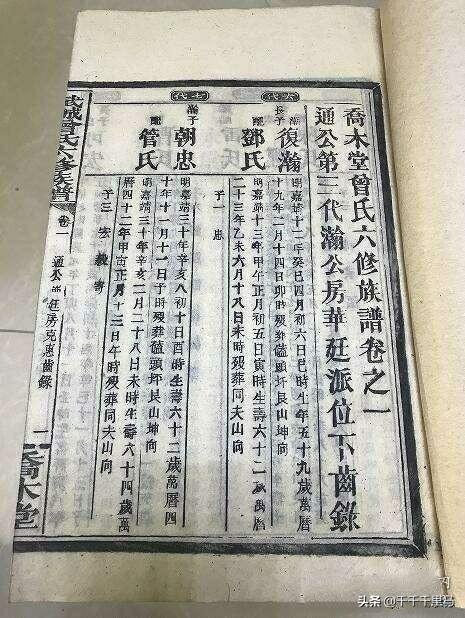 喬木堂曾氏六修族譜卷之一
通公第二代瀚公房華廷派位下齒錄
瀚長子
復瀚
明嘉靖十二年癸巳四月初六日巳時生年五十九歲萬曆
十九年二月十四日卯時歿葬磕頭坪艮山坤向
配
鄧氏
明嘉靖十三年甲午正月初五日寅時生壽六十二歲萬曆
二十三年乙未六月十八日未時歿葬同夫山向
子一 忠
瀚子
朝忠
明嘉靖三十年辛亥八月初十日酉時生壽六十二歲萬曆四
十年十二月十一日子時歿葬磕頭坪艮山坤向
配
管氏
明嘉靖三十年辛亥二月二十八日未時生壽六十四歲萬
曆四十二年甲寅正月十三日午時歿葬同夫山向
子三
武城曾氏六修族譜
卷一
通公
房克惠齒錄
一
喬木堂
头条 @千千千里马